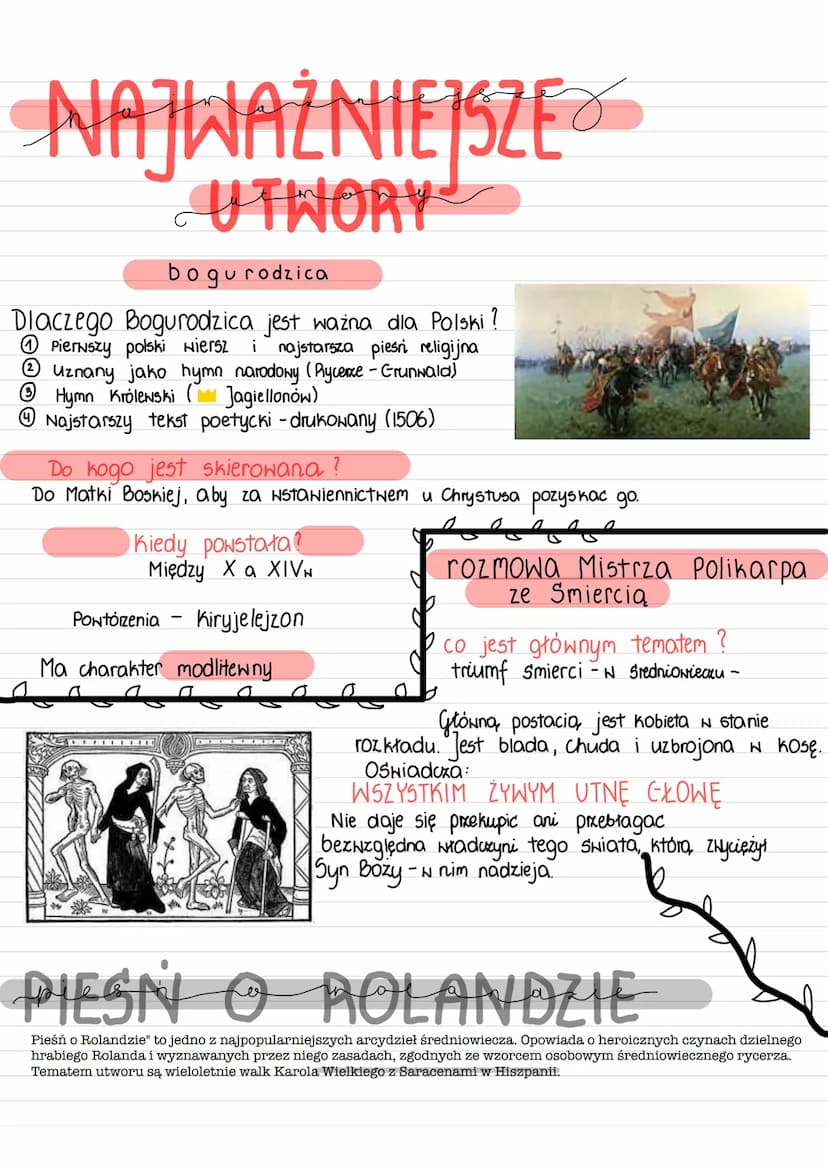 NAJWAŻNIEJSZE
najważniejsze
UTWORY
utwory
bogurodzica
Dlaczego Bogurodzica jest ważna dla Polski?
① Pierwszy polski wiersz i najstarsza pieśń religijna
② Uznany jako hymn narodowy (Rycerze - Grunwald)
③ Hymn Królewski (👑 Jagiellonów)
④ Najstarszy tekst poetycki - drukowany (1506)
Do kogo jest skierowana?
Do Matki Boskiej, aby za wstawiennictwem u Chrystusa pozyskać go.
Kiedy powstała?
Między X a XIVw
Powtórzenia - Kiryjelejzon
Ma charakter modlitewny
rozmowa Mistrza Polikarpa
ze Śmiercią
co jest głównym tematem?
triumf śmierci - w średniowieczu -
Główną postacią jest kobieta w stanie
rozkładu. Jest blada, chuda i uzbrojona w kosę.
Oświadcza:
WSZYSTKIM ŻYWYM UTNĘ GŁOWĘ
Nie daje się przekupić ani przebłagać
bezwzględna władczyni tego świata, którą zwyciężył
Syn Boży - w nim nadzieja.
PIEŚŃ O ROLANDZIE
pieśń o rolandzie
Pieśń o Rolandzie" to jedno z najpopularniejszych arcydzieł średniowiecza. Opowiada o heroicznych czynach dzielnego
hrabiego Rolanda i wyznawanych przez niego zasadach, zgodnych ze wzorcem osobowym średniowiecznego rycerza.
Tematem utworu są wieloletnie walk Karola Wielkiego z Saracenami w Hiszpanii.